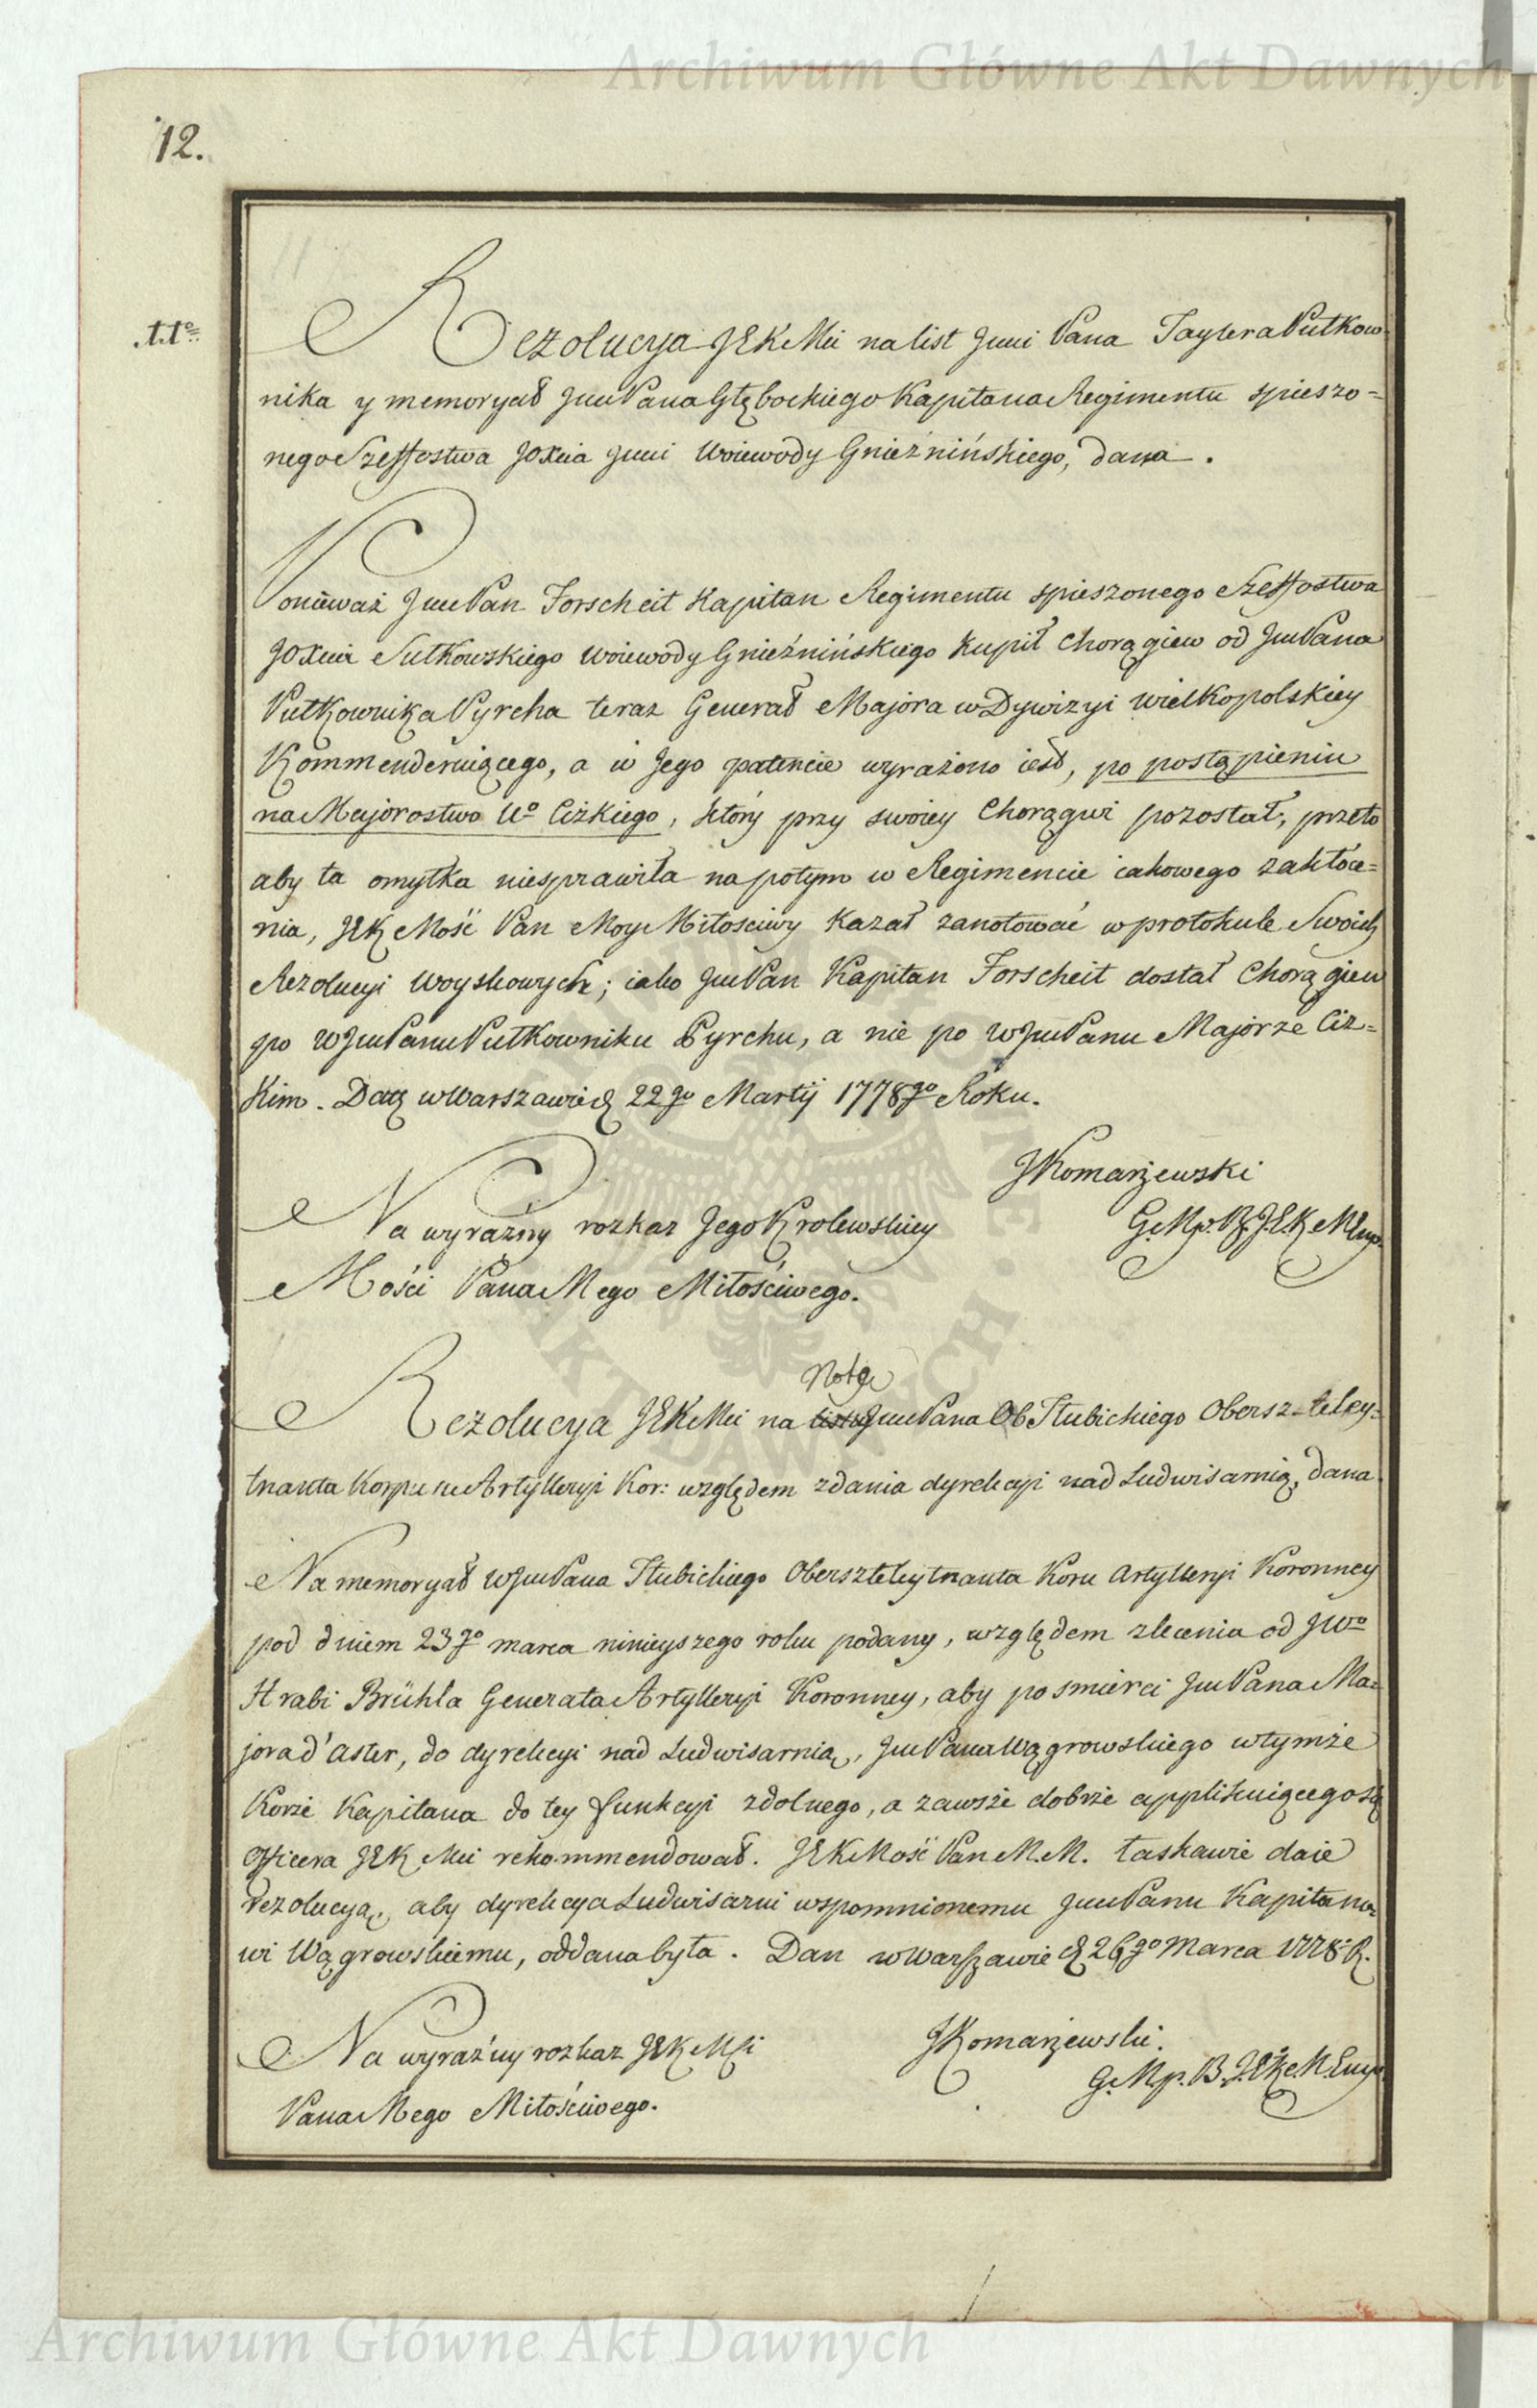 Archiwum Główne Akt Dawnych
12.
Rezolucya JEKMci na list Jmci Pana Taylera Pułkow-
nika y memoryał JmciPana Głębockiego Kapitana Regimentu spieszo=
nego Szeffostwa JOXcia Jmci Woiewody Gnieźnińskiego, dana.
Ponieważ JmciPan Forscheit Kapitan Regimentu spieszonego Szeffostwa
JOXcia Sułkowskiego Woiewody Gnieźnińskiego kupił Chorągiew od JmciPana
Pułkownika Pyrcha teraz Generał Majora w Dywizyi wielkopolskiey
Kommenderuiącego, a w Jego patencie wyrażono iest, po postąpieniu
na Majorostwo Uo Cizkiego, który przy swoiey Chorągwi pozostał, przeto
aby ta omyłka niesprawiła napotym w Regimencie iakowego zakłóce=
nia, JEK Mość Pan Moy Miłościwy kazał zanotować w protokule Swoich
Rezolucyi Woyskowych; iako JmciPan Kapitan Forscheit dostał Chorągiew
po WJmciPanu Pułkowniku Pyrchu, a nie po WJmciPanu Majorze Ciz=
kim. Datt w Warszawie d 22go Martij 1778go Roku.
JKomarzewski
G.Mp.B.J.E.K.M.
Na wyraźny rozkaz Jego Krolewskiey
Mości Pana Mego Miłościwego.
Notę
Rezolucya JEKMci na listę JmciPana Ob Słubickiego Obersz-leley-
tnanta Korpusu Artylleryi Kor: względem zdania dyrekcyi nad Ludwisarnią, dana
Na memoryał WJmciPana Słubickiego Oberszteleytnanta Koru Artylleryi Koronney
pod dniem 23go marca ninieyszego roku podany, względem zlecenia od JWo
Hrabi Brühla Generała Artylleryi Koronney, aby po smierci JmciPana Ma=
jora d'Aster, do dyrekcyi nad Ludwisarnią, JmciPana Wągrowskiego w tymże
Korze Kapitana do tey funkcyi zdolnego, a zawsze dobrze applikuiącego się
Officera JEK Mci rekommendował. JEKMość Pan M.M. łaskawie daie
rezolucyą, aby dyrekcya Ludwisarni wspomnionemu JmciPanu Kapitano-
wi Wągrowskiemu, oddana była. Dan w Warszawie d 26go Marca 1778 R.
Na wyraźny rozkaz JEKMści
Pana Mego Miłościwego.
JKomarzewski.
G.Mp.B.J.E.K.M.
Archiwum Główne Akt Dawnych